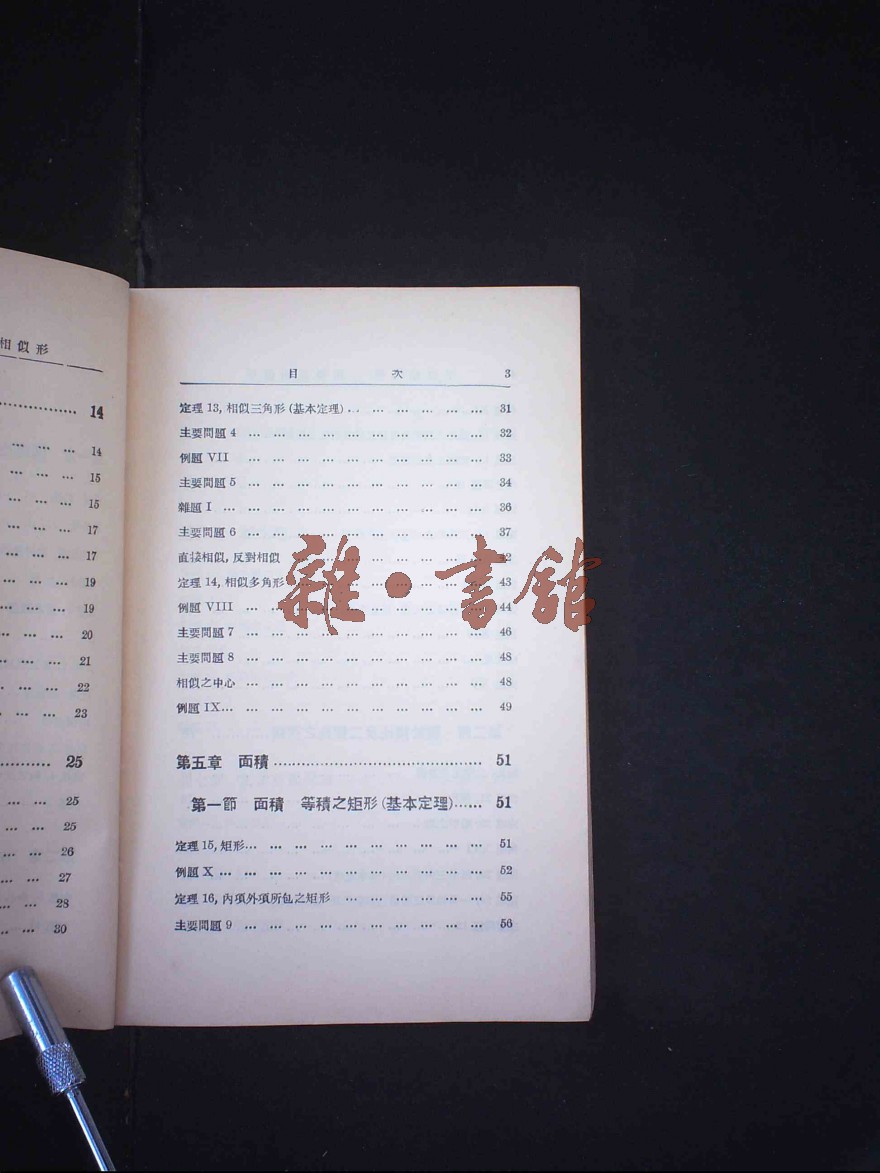 相似形
14
14
15
15
17
17
19
19
20
21
22
23
25
25
25
26
27
28
30
目 次 3
定理 13, 相似三角形 (基本定理) 31
主要問題 4 32
例題 VII 33
主要問題 5 34
雜題 I 36
主要問題 6 37
直接相似, 反對相似
定理 14, 相似多角形 43
例題 VIII 44
主要問題 7 46
主要問題 8 48
相似之中心 48
例題 IX 49
第五章 面積 51
第一節 面積 等積之矩形 (基本定理) 51
定理 15, 矩形 51
例題 X 52
定理 16, 內項外項所包之矩形 55
主要問題 9 56
雜·書館